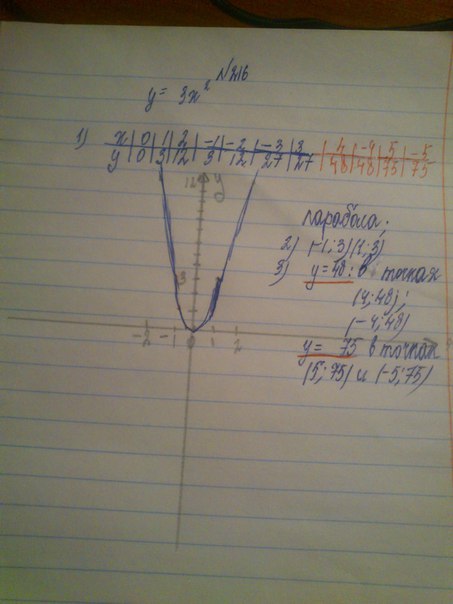 N216
y = 3x²
1) x | 0 | 1 | 2 | -1 | -2 | -3 | 3 | 4 | -4 | 5 | -5
y | 0 | 3 | 12 | 3 | 12 | 27 | 27 | 48 | 48 | 75 | 75
12 y
парабола,
2) (-1; 3) (1; 3)
3) y = 48: в точках
(4; 48);
(-4; 48)
y = 75 в точках
(5; 75) и (-5; 75)
3
-2 -1 0 1 2